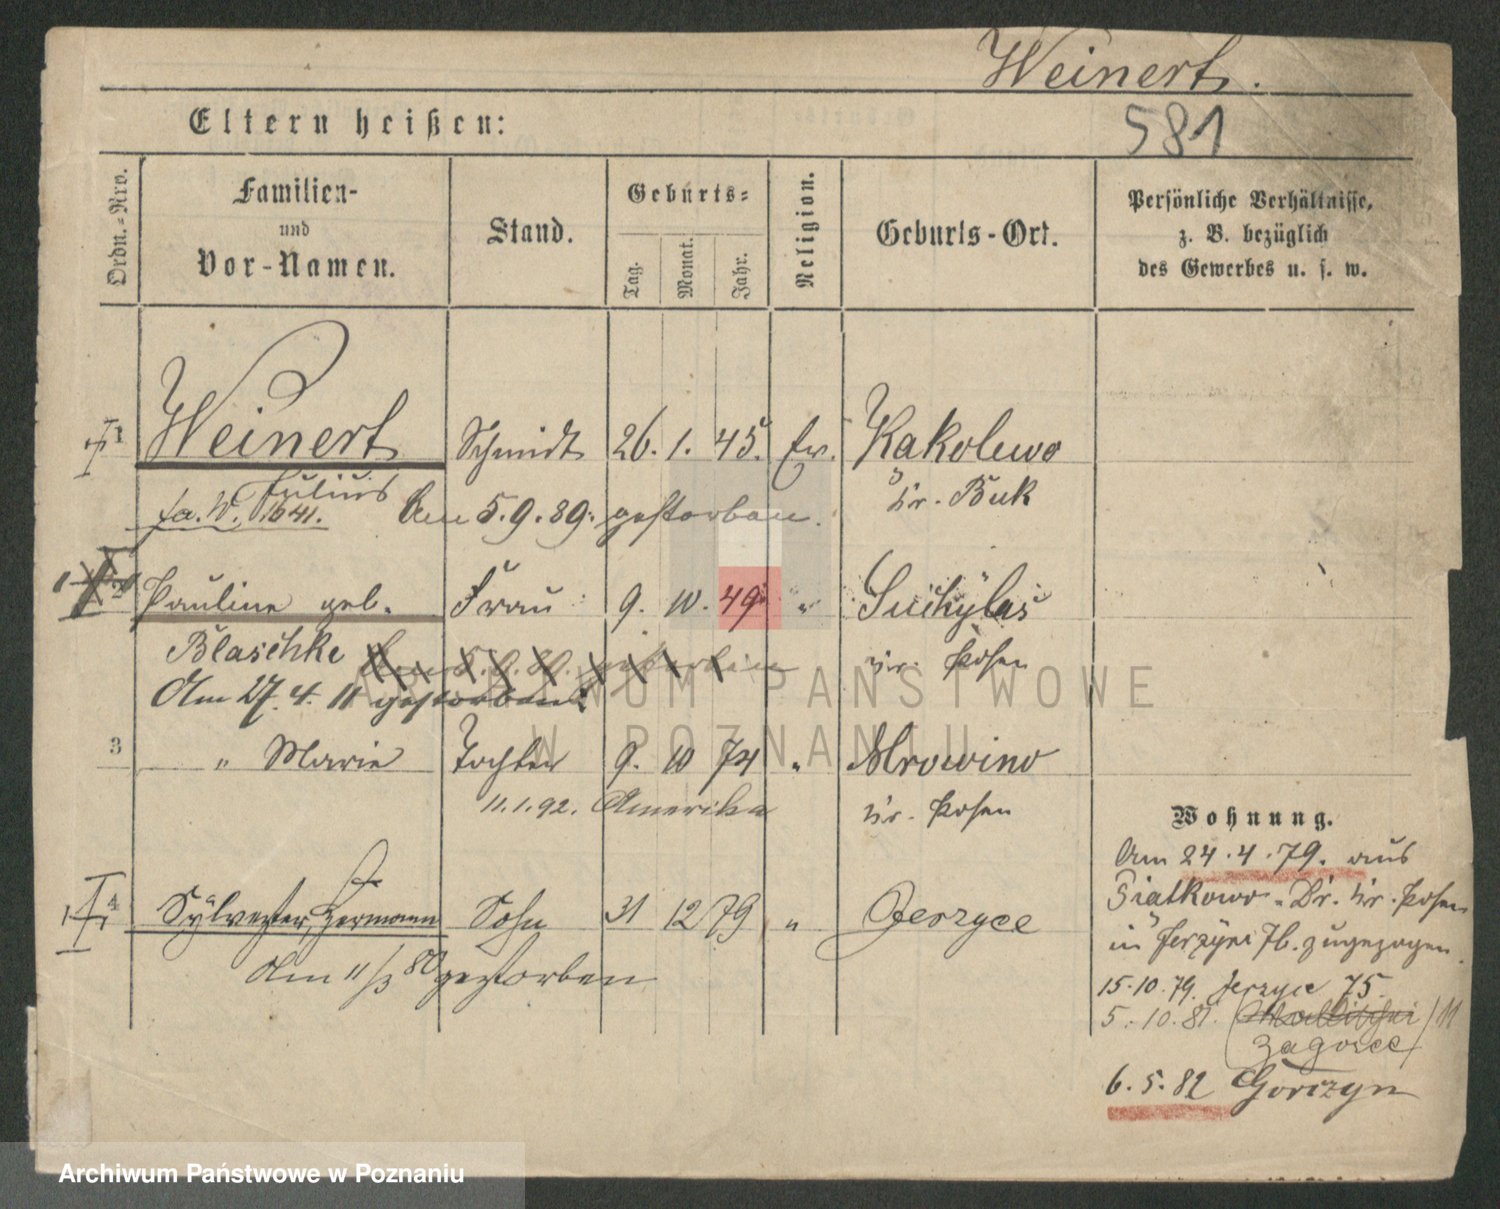 Weinert.
581
Eltern heißen:
Ordn.-Nro.
Familien-
und
Vor-Namen.
Stand.
Geburts-
Tag.
Monat.
Jahr.
Religion.
Geburts-Ort.
Persönliche Verhältnisse,
z. B. bezüglich
des Gewerbes u. s. w.
1 Weinert Schmidt 26. 1. 45. Ev. Kakolewo
Julius
fa. W. 1641. Am 5.9.89. gestorben. Kr. Buk
2 Pauline geb. Frau 9. 10. 49 " Suchylas
Blaschke Am 5.9.89. gestorben Kr. Posen
Am 27.4.11 gestorben
ARCHIWUM PAŃSTWOWE
W POZNANIU
3 " Marie Tochter 9. 10 74 " Mrowino
11.1.92. Amerika Kr. Posen
4 Sylvester, Hermann Sohn 31 12 79 " Jerzyce
Am 11/3 80 gestorben
Wohnung.
Am 24.4.79. aus
Piatkowo Kr. Posen
in Jerzyce 7b. zugezogen.
15.10.79. Jerzyce 75.
5.10.81. 11
Zagorce
6.5.82 Gorczyn
Archiwum Państwowe w Poznaniu